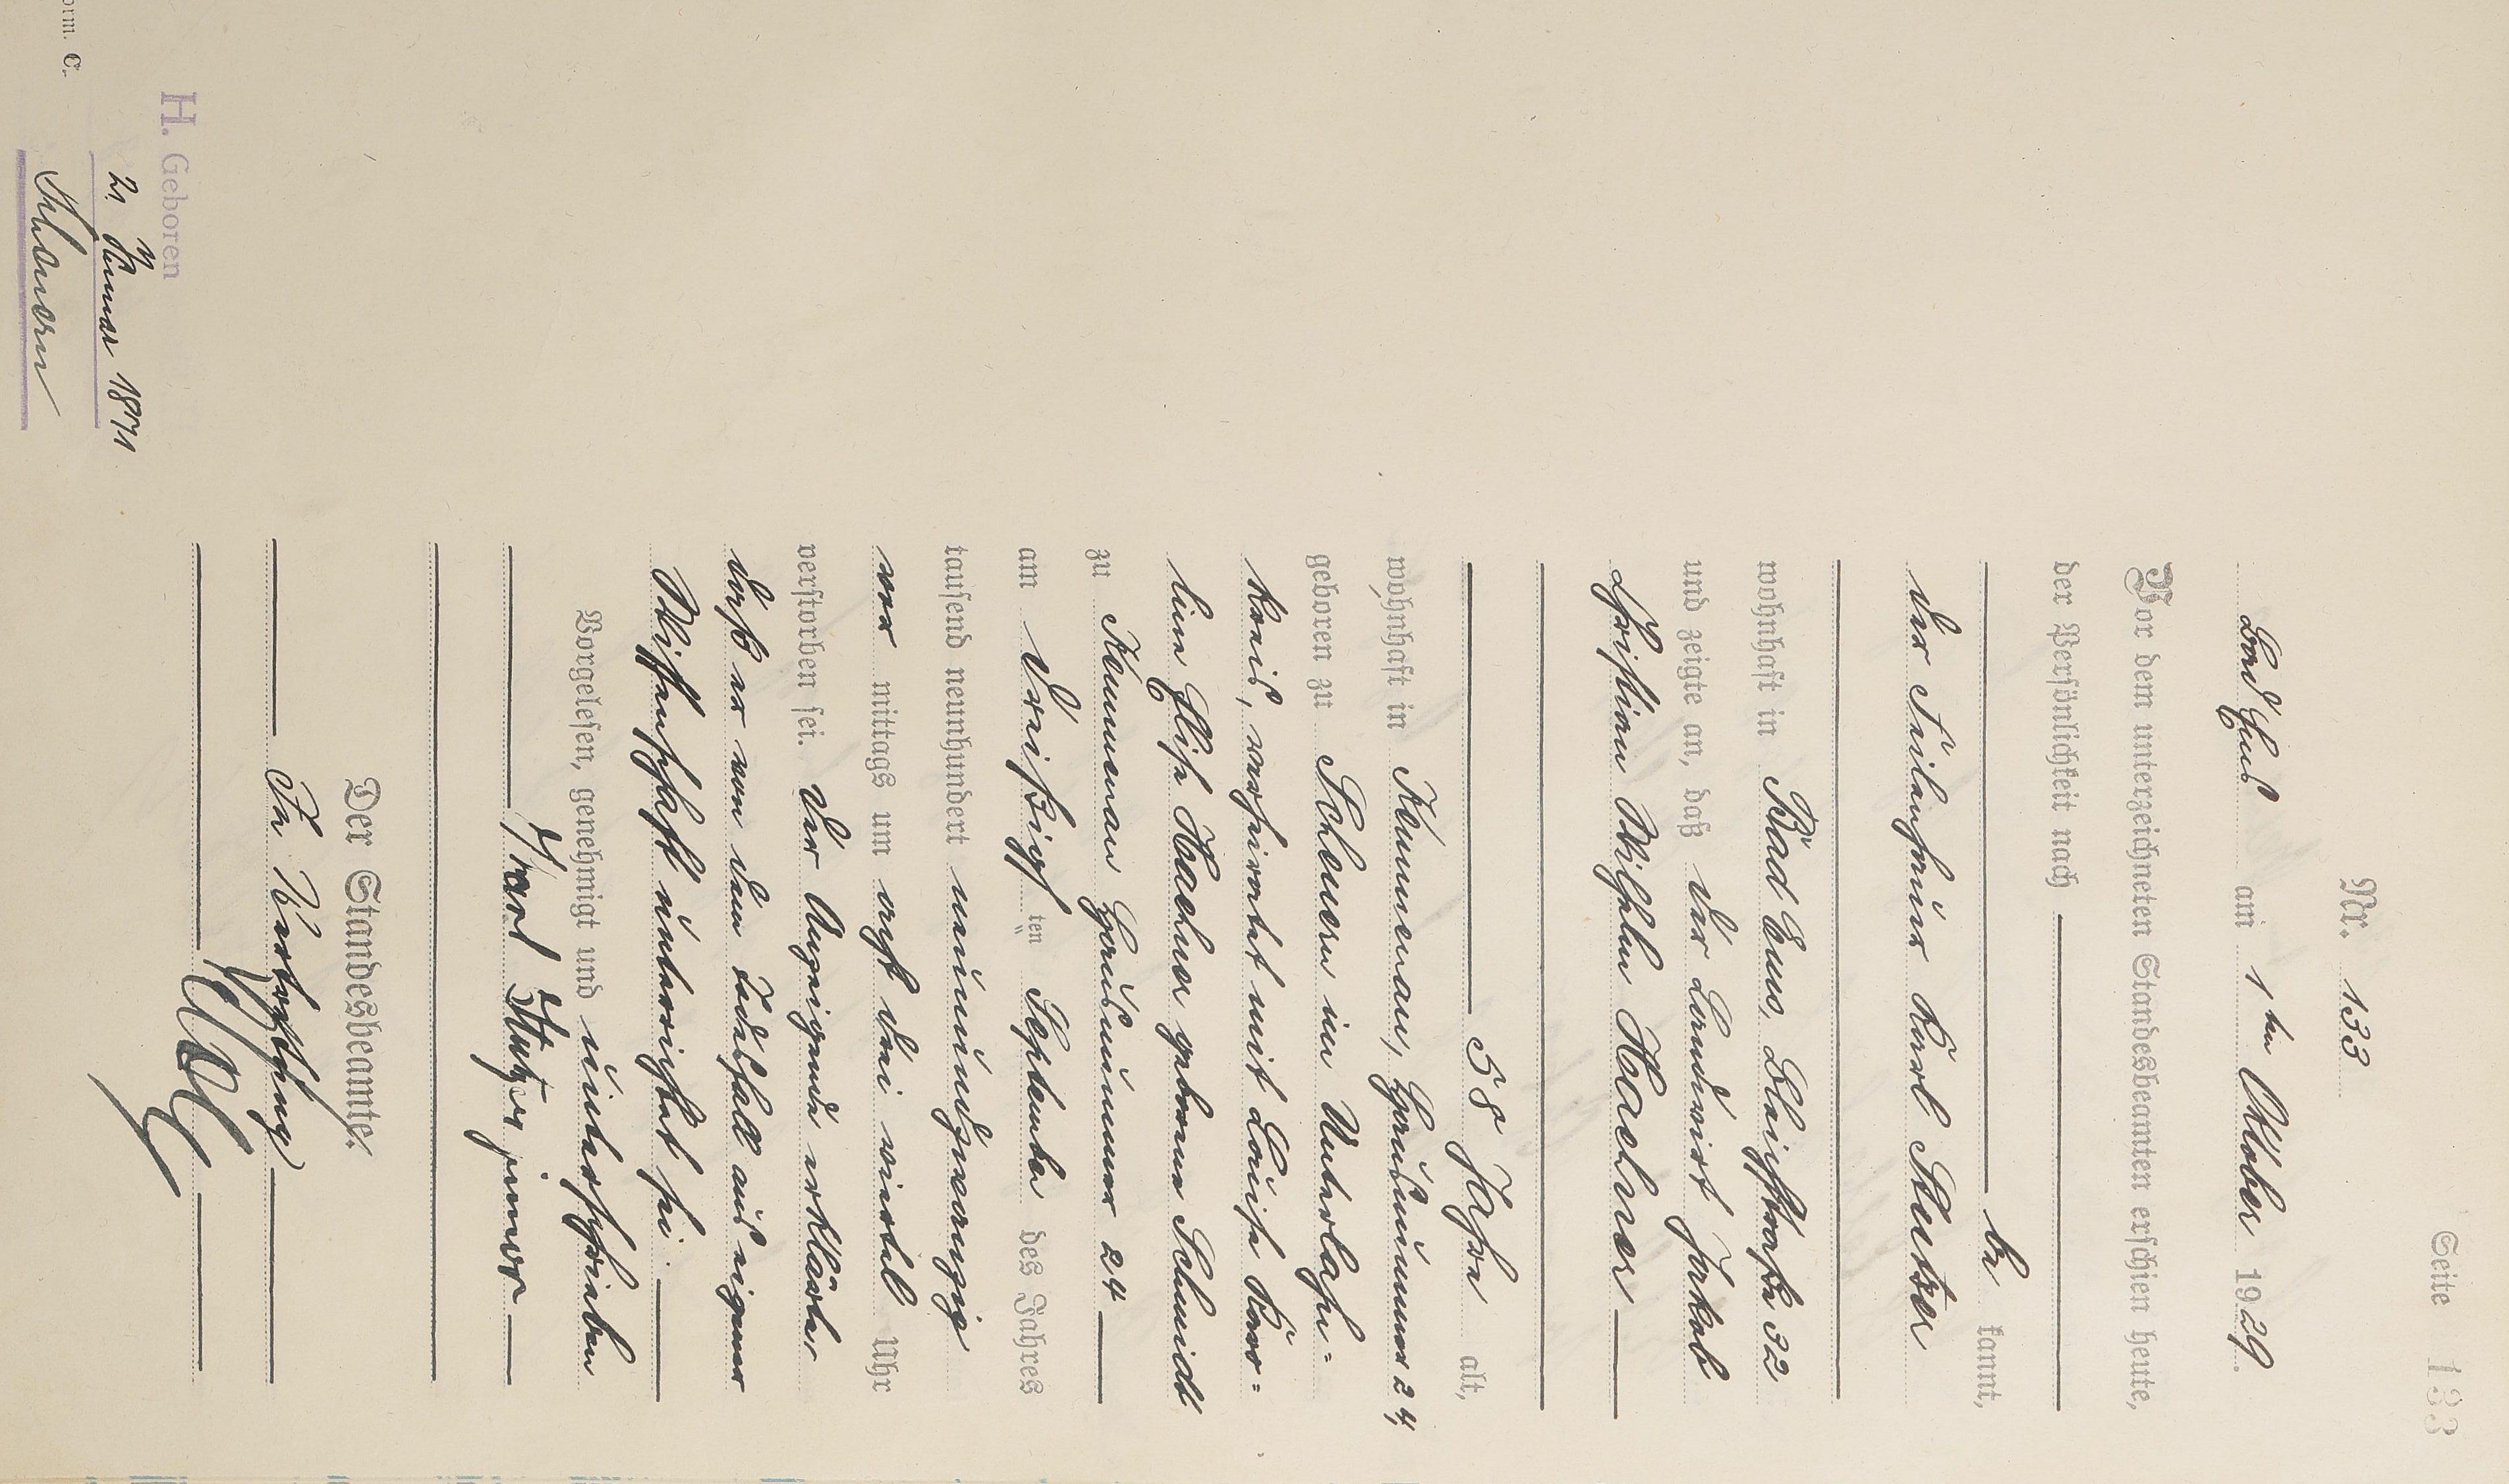 Seite 133
Nr. 133
Bad Ems am 1ten Oktober 1929.
Vor dem unterzeichneten Standesbeamten erschien heute,
der Persönlichkeit nach
be kannt,
der Karl Stutzer
wohnhaft in Bad Ems, Bleichstraße 32
und zeigte an, daß der Landwirt Jakob
Christian Wilhelm Haxel
58 Jahre alt,
wohnhaft in Kemmenau, Hausnummer 24,
geboren zu Scheuern im Unterlahn-
kreis, verheiratet mit Luise Karo-
line Elise geborene Schmidt
zu Kemmenau Hausnummer 24
am dreißigsten September des Jahres
tausend neunhundert neunundzwanzig
vor mittags um drei viertel Uhr
verstorben sei. Der Anzeigende erklärte,
daß er von dem Todesfall aus eigener
Wissenschaft unterrichtet sei.
Vorgelesen, genehmigt und unterschrieben
Karl Stutzer junior
Der Standesbeamte.
In Vertretung
H. Geboren
2. Januar 1871
Scheuern
orm. C.